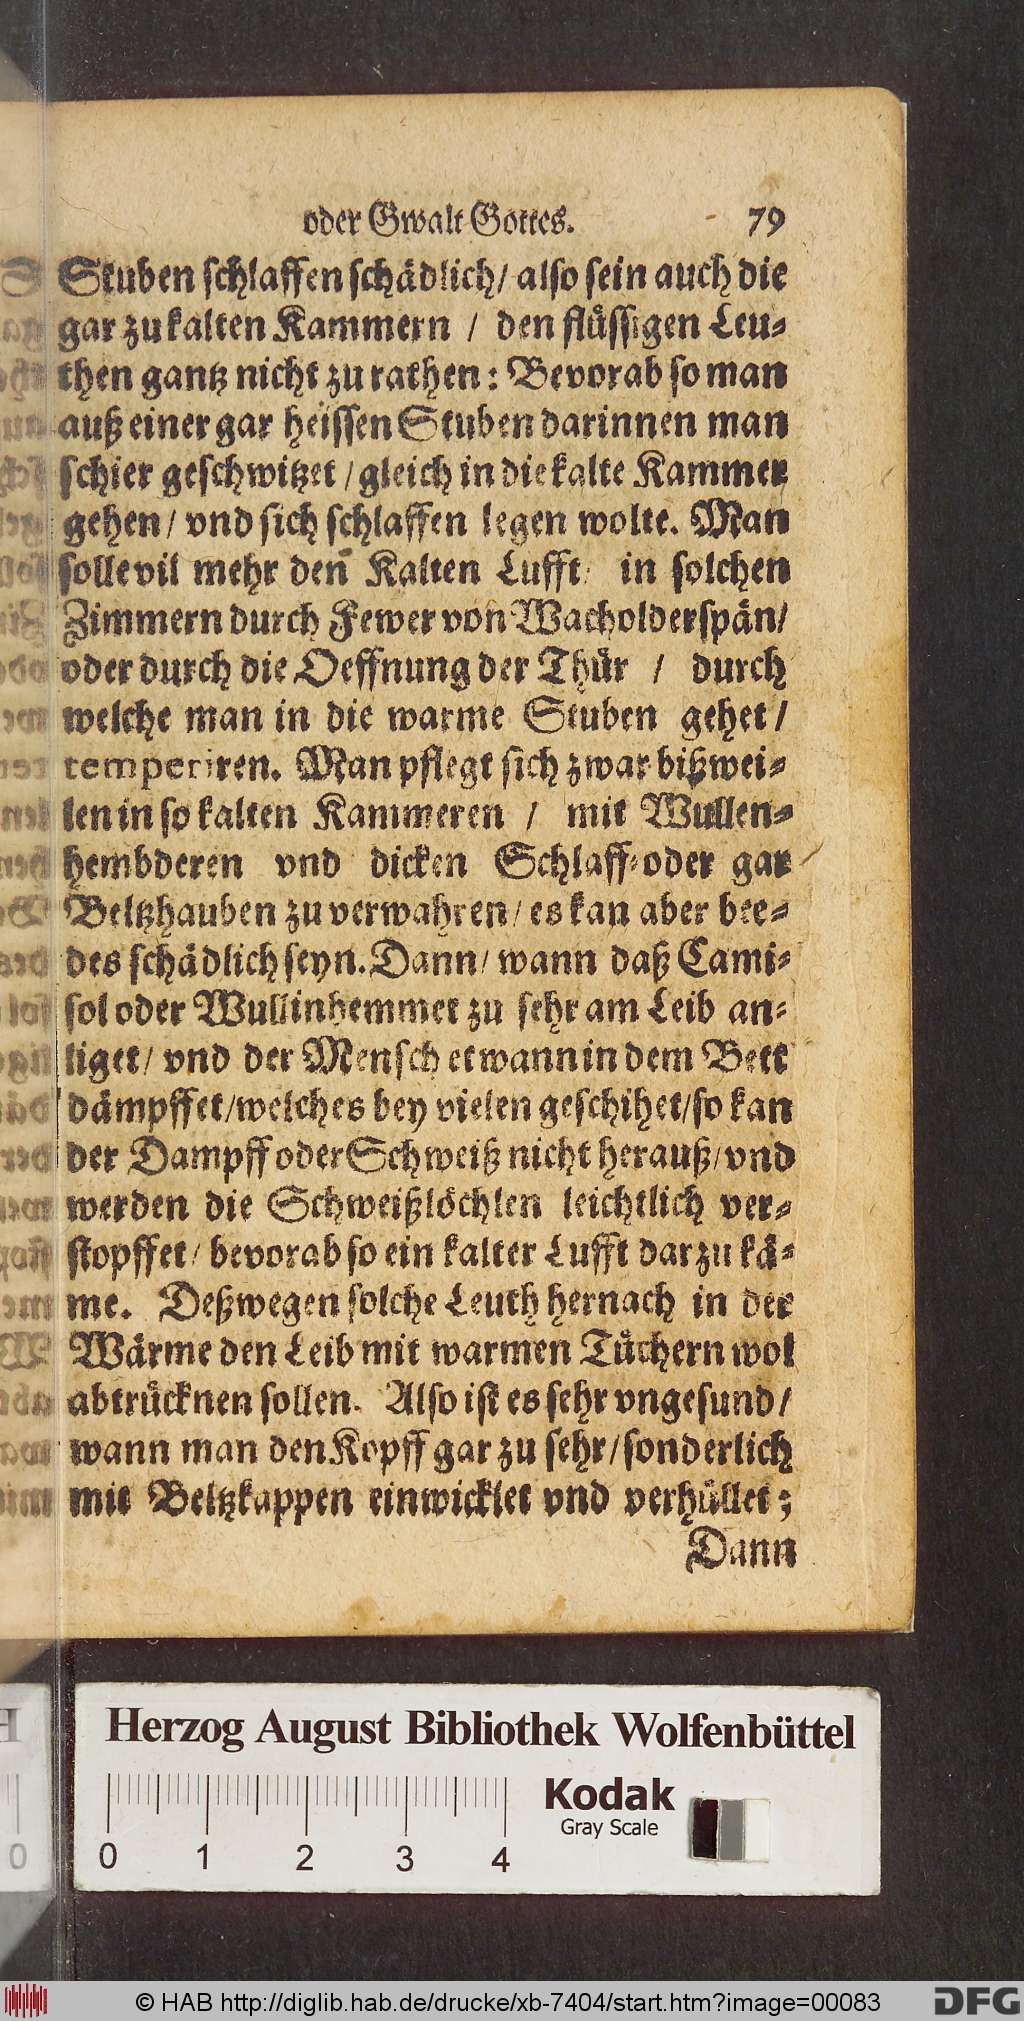 oder Gwalt Gottes. 79
Stuben schlaffen schädlich/ also sein auch die
gar zu kalten Kammern / den flüssigen Leu-
then gantz nicht zu rathen: Bevorab so man
auß einer gar heissen Stuben darinnen man
schier geschwitzet / gleich in die kalte Kammer
gehen/ vnd sich schlaffen legen wolte. Man
solle vil mehr den Kalten Lufft/ in solchen
Zimmern durch Fewer von Wacholderspän/
oder durch die Oeffnung der Thür / durch
welche man in die warme Stuben gehet/
temperiren. Man pflegt sich zwar bißwei-
len in so kalten Kammeren / mit Wullen-
hembderen vnd dicken Schlaff-oder gar
Beltzhauben zu verwahren/ es kan aber bee-
des schädlich seyn. Dann/ wann daß Cami-
sol oder Wullinhemmet zu sehr am Leib an-
liget/ vnd der Mensch etwann in dem Bett
dämpffet/welches bey vielen geschihet/so kan
der Dampff oder Schweiß nicht herauß/vnd
werden die Schweißlöchlen leichtlich ver-
stopffet/ bevorab so ein kalter Lufft darzu kä-
me. Deßwegen solche Leuth hernach in der
Wärme den Leib mit warmen Tüchern wol
abtrücknen sollen. Also ist es sehr vngesund/
wann man den Kopff gar zu sehr/sonderlich
mit Beltzkappen einwicklet vnd verhüllet;
Dann
Herzog August Bibliothek Wolfenbüttel
Kodak
Gray Scale
0 1 2 3 4
© HAB http://diglib.hab.de/drucke/xb-7404/start.htm?image=00083 DFG